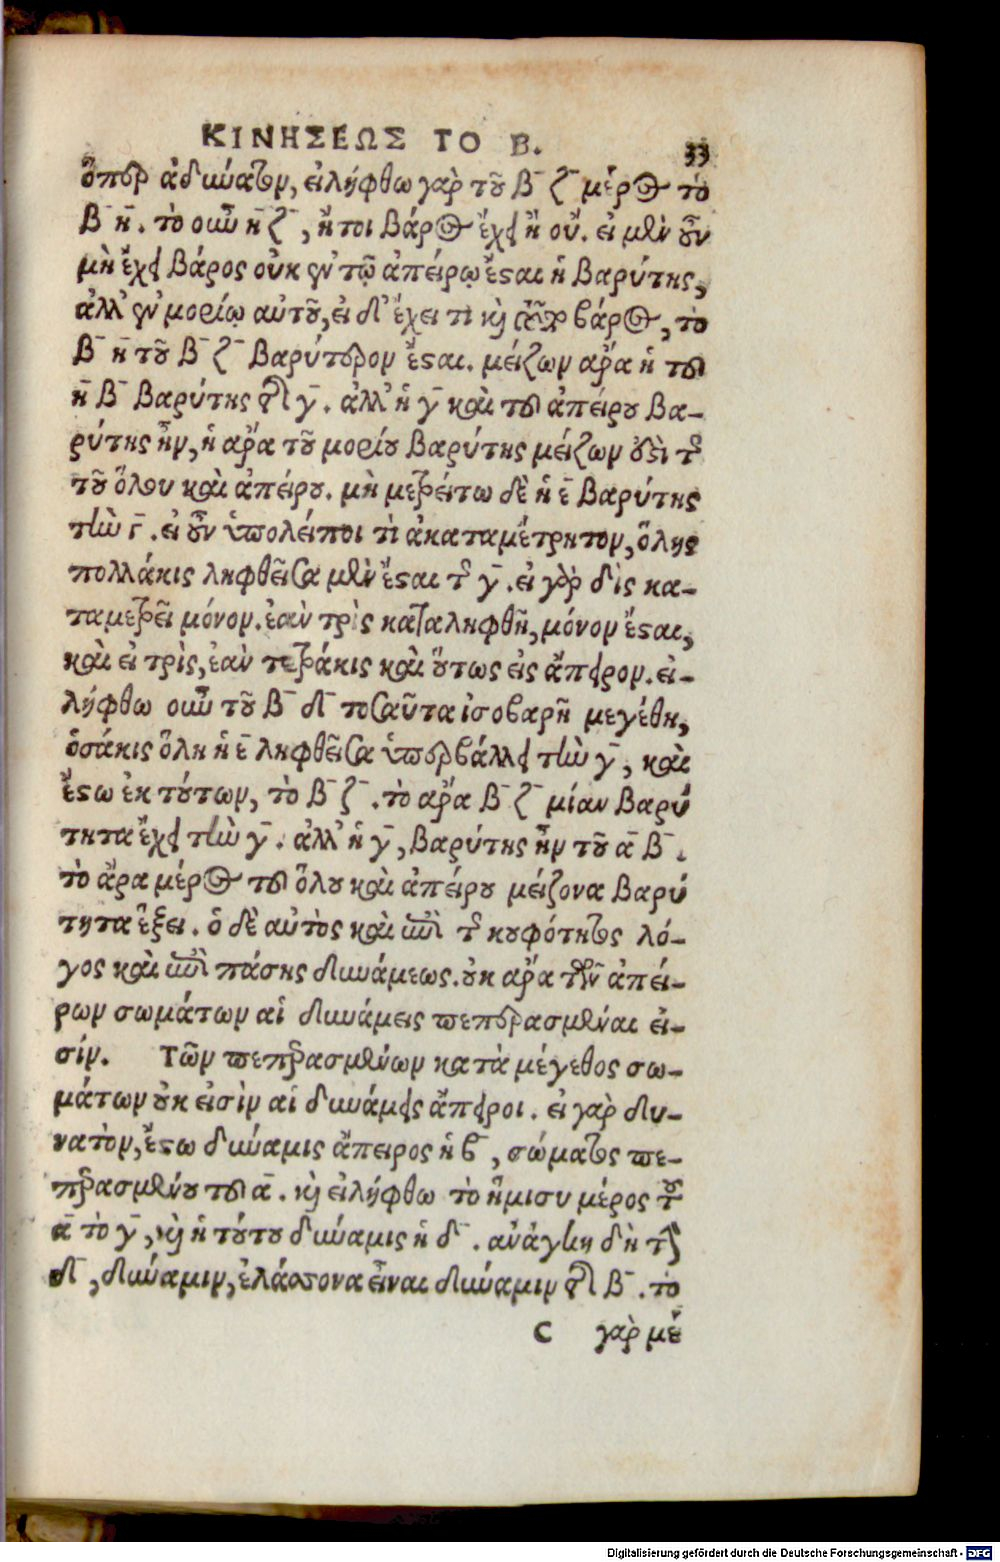 ΚΙΝΗΣΕΩΣ ΤΟ Β. 33
ὅπερ ἀδύνατον, εἰλήφθω γὰρ τοῦ β̄ ζ̄ μέρος τὸ
β̄ η̄. τὸ οὖν η̄ ζ̄, ἤτοι βάρος ἔχει ἢ οὔ. εἰ μὲν οὖν
μὴ ἔχει βάρος οὐκ ἐν τῷ ἀπείρῳ ἔσται ἡ βαρύτης,
ἀλλ' ἐν μορίῳ αὐτοῦ, εἰ δ' ἔχει τι καὶ αὐτὸ βάρος, τὸ
β̄ η̄ τοῦ β̄ ζ̄ βαρύτερον ἔσται. μείζων ἄρα ἡ τοῦ
η̄ β̄ βαρύτης τῆς γ̄. ἀλλ' ἡ γ̄ καὶ τοῦ ἀπείρου βα-
ρύτης ἦν, ἡ ἄρα τοῦ μορίου βαρύτης μείζων ἐστὶ τῆς
τοῦ ὅλου καὶ ἀπείρου. μὴ μετρείτω δὲ ἡ ε̄ βαρύτης
τὴν γ̄. εἰ οὖν ὑπολείποι τὶ ἀκαταμέτρητον, ὅλης
πολλάκις ληφθεῖσα μὲν ἔσται τῆς γ̄. εἰ γὰρ δὶς κα-
ταμετρεῖ μόνον. ἐὰν τρὶς καταληφθῇ, μόνον ἔσται,
καὶ εἰ τρὶς, ἐὰν τετράκις καὶ οὕτως εἰς ἄπειρον. εἰ-
λήφθω οὖν τοῦ β̄ δ̄ τοσαῦτα ἰσοβαρῆ μεγέθη,
ὁσάκις ὅλη ἡ ε̄ ληφθεῖσα ὑπερβάλλει τὴν γ̄, καὶ
ἔστω ἐκ τούτων, τὸ β̄ ζ̄. τὸ ἄρα β̄ ζ̄ μίαν βαρύ
τητα ἔχει τὴν γ̄. ἀλλ' ἡ γ̄, βαρύτης ἦν τοῦ ᾱ β̄.
τὸ ἄρα μέρος τοῦ ὅλου καὶ ἀπείρου μείζονα βαρύ
τητα ἕξει. ὁ δὲ αὐτὸς καὶ ἐπὶ τῆς κουφότητος λό-
γος καὶ ἐπὶ πάσης δυνάμεως. οὐκ ἄρα τῶν ἀπεί-
ρων σωμάτων αἱ δυνάμεις πεπερασμέναι εἰ-
σίν. Τῶν πεπερασμένων κατὰ μέγεθος σω-
μάτων οὐκ εἰσὶν αἱ δυνάμεις ἄπειροι. εἰ γὰρ δυ-
νατὸν, ἔστω δύναμις ἄπειρος ἡ β̄, σώματος πε-
περασμένου τοῦ ᾱ. καὶ εἰλήφθω τὸ ἥμισυ μέρος τοῦ
ᾱ τὸ γ̄, καὶ ἡ τούτου δύναμις ἡ δ̄. ἀνάγκη δὴ τὴν
δ̄, δύναμιν, ἐλάσσονα εἶναι δύναμιν τῆς β̄. τὸ
C γὰρ μέ
Digitalisierung gefördert durch die Deutsche Forschungsgemeinschaft - DFG